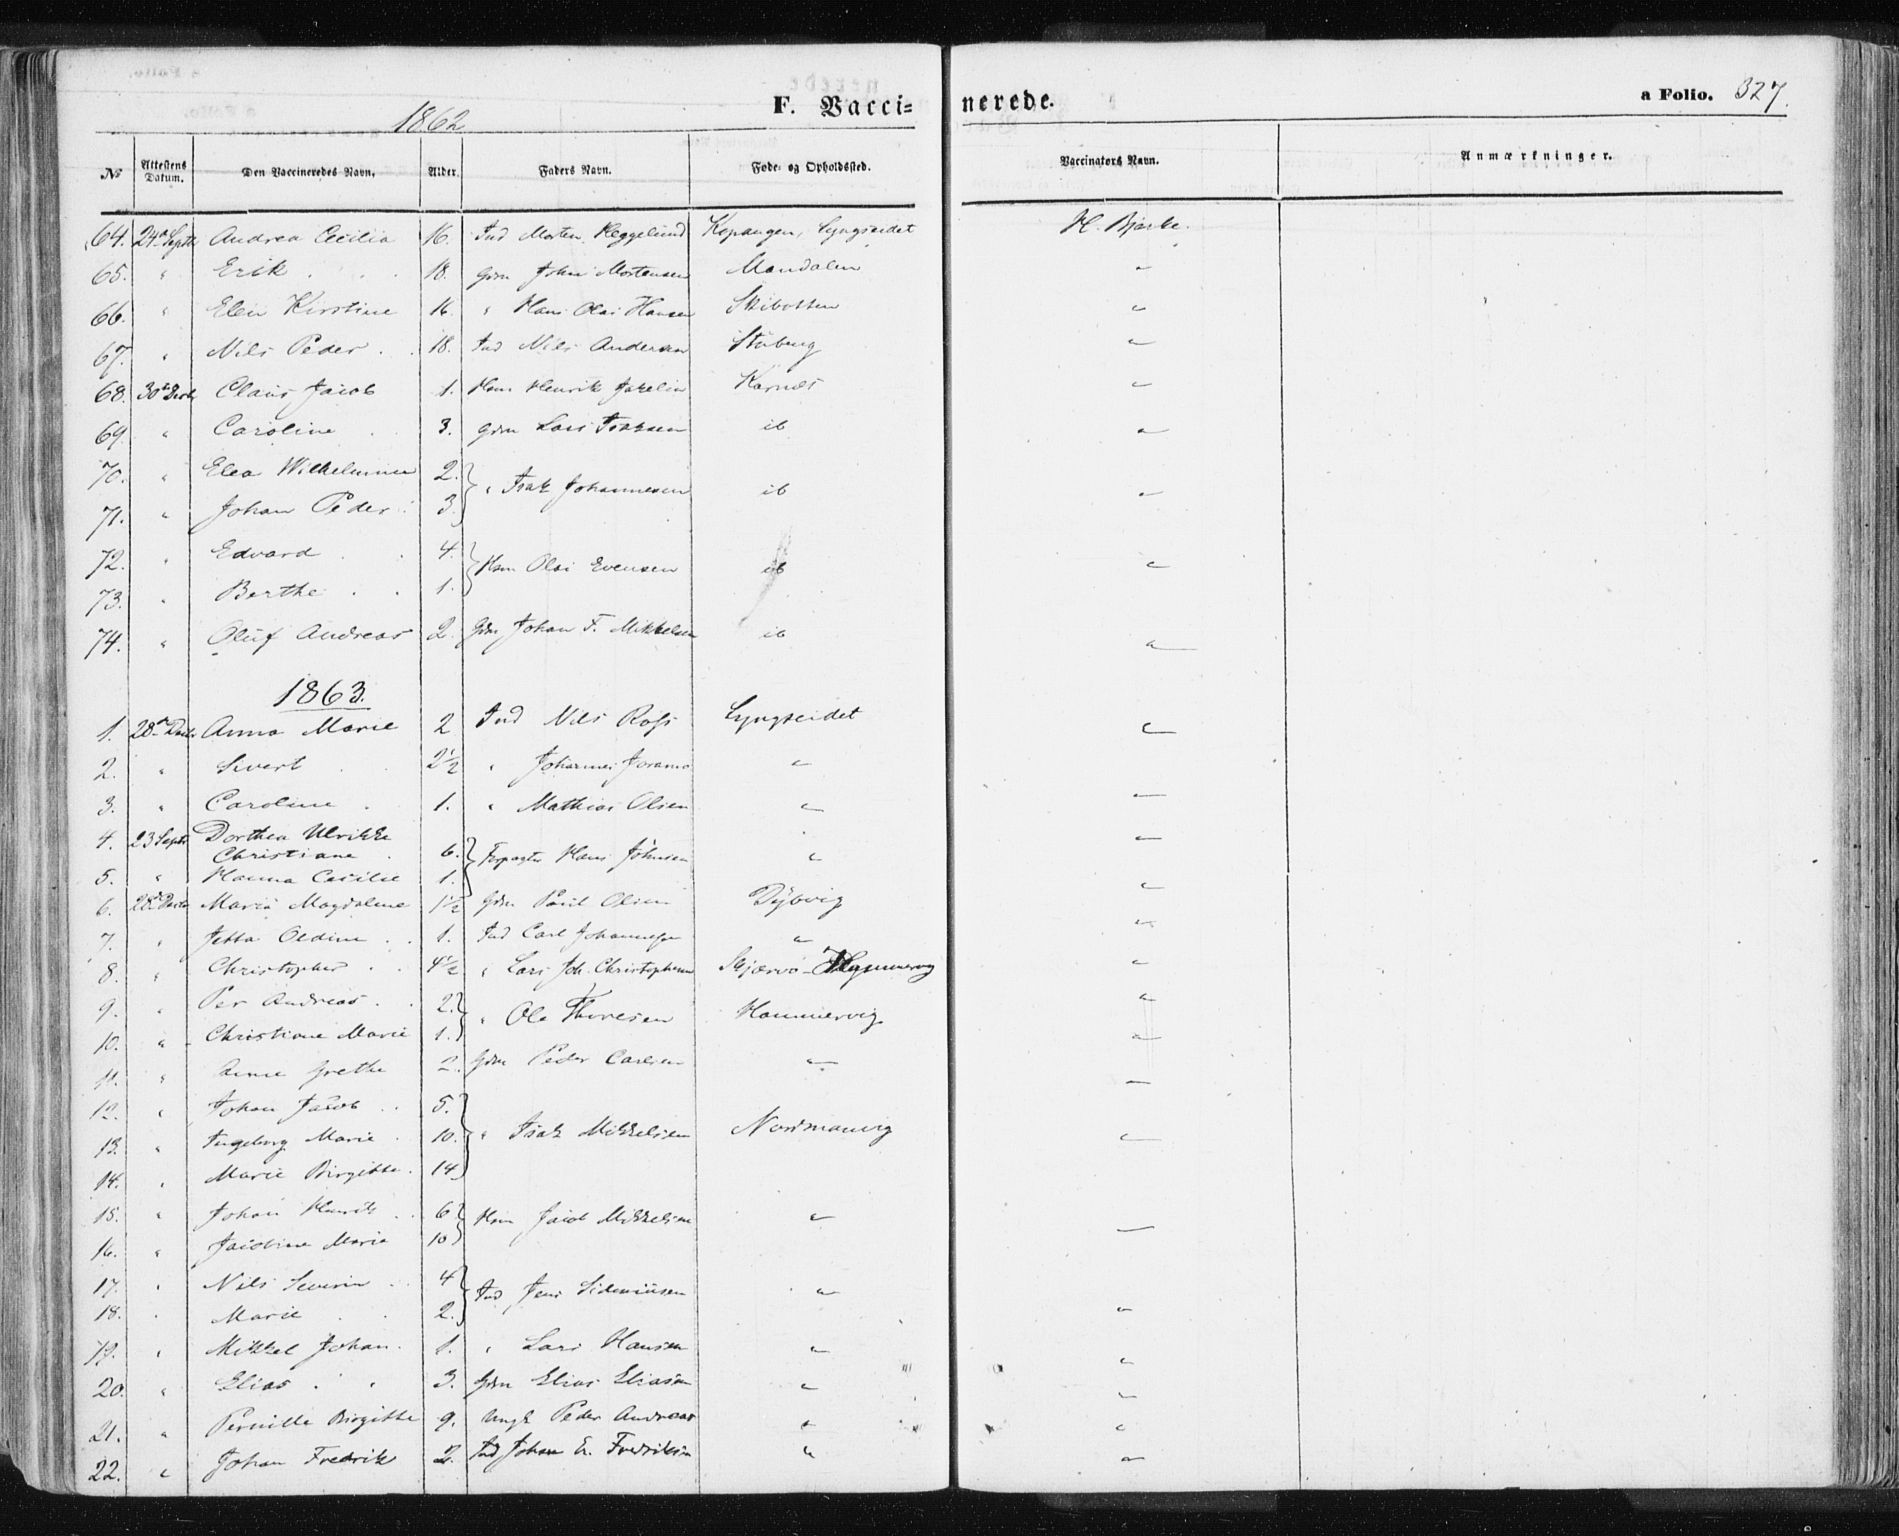 1862 F. Vaccinerede. a Folio. 327.
№ Attestens Datum. Den Vaccineredes Navn. Alder. Faders Navn. Føde- og Opholdssted. Vaccinators Navn. Anmærkninger.
64. 24 Septb Andrea Cecilia 16. Ind Morten Heggelund Kopangen, Lyngseidet H. Bjerke.
65. " Erik 18. Gdm John Mortensen Mandalen "
66. " Elen Kirstine 16. " Hans Olai Hansen Skibotten "
67. " Nils Peder 18. Ind Nils Andersen "
68. 30 Decb Claus Jacob 1. Hsm Henrik Karnæs "
69. " Caroline 3. Gdm Lars Isaksen ib "
70. " Elea Wilhelmine 2. } " Isak Johannesen ib "
71. " Johan Peder 3. }
72. " Edvard 4. } Hsm Olai Evensen ib "
73. " Berthe 1. }
74. " Oluf Andreas 2. Gdm Johan F. Mikkelsen ib "
1863.
1. Anna Marie 2 Ind Nils Ross Lyngseidet "
2. " Sivert 2½ " Johannes "
3. " Caroline 1. " Mathias Olsen " "
4. 23 Septb Dorthea Ulrikke
Christiane 6. } Hans Johnsen " "
5. " Hanna Cecilie 1. } "
6. Maria Magdalene 1½ Gdm Paul Olsen Dybvig "
7. " Jetta Oldine 1. Ind Carl Johannessen " "
8. " Christopher 4½ " Lars Joh. Christophersen Skjærvø "
9. " Per Andreas 2. } " Ole Thoresen Hammervig "
10. " Christiane Marie 1. }
11. " Anne Grethe 2. Gdm Peder Carlsen " "
12. " Johan Jacob 5. }
13. " Ingeborg Marie 10. } " Isak Mikkelsen Nordmanvig "
14. " Marie Birgitte 14 }
15. " Johan Henrik 6 } Hsm Jacob Mikkelsen " "
16. " Jacobine Maria 10 }
17. " Nils Severin 4 } Ind Jens " "
18. " Marie 2. }
19. " Mikkel Johan 1. " Lars Hansen " "
20. " Elias 3. Gdm Elias Eliasen " "
21. " Pernille Birgitte 9. Ungk Peder Andreas " "
22. " Johan Fredrik 2. Ind Johan E. Fredriksen " "